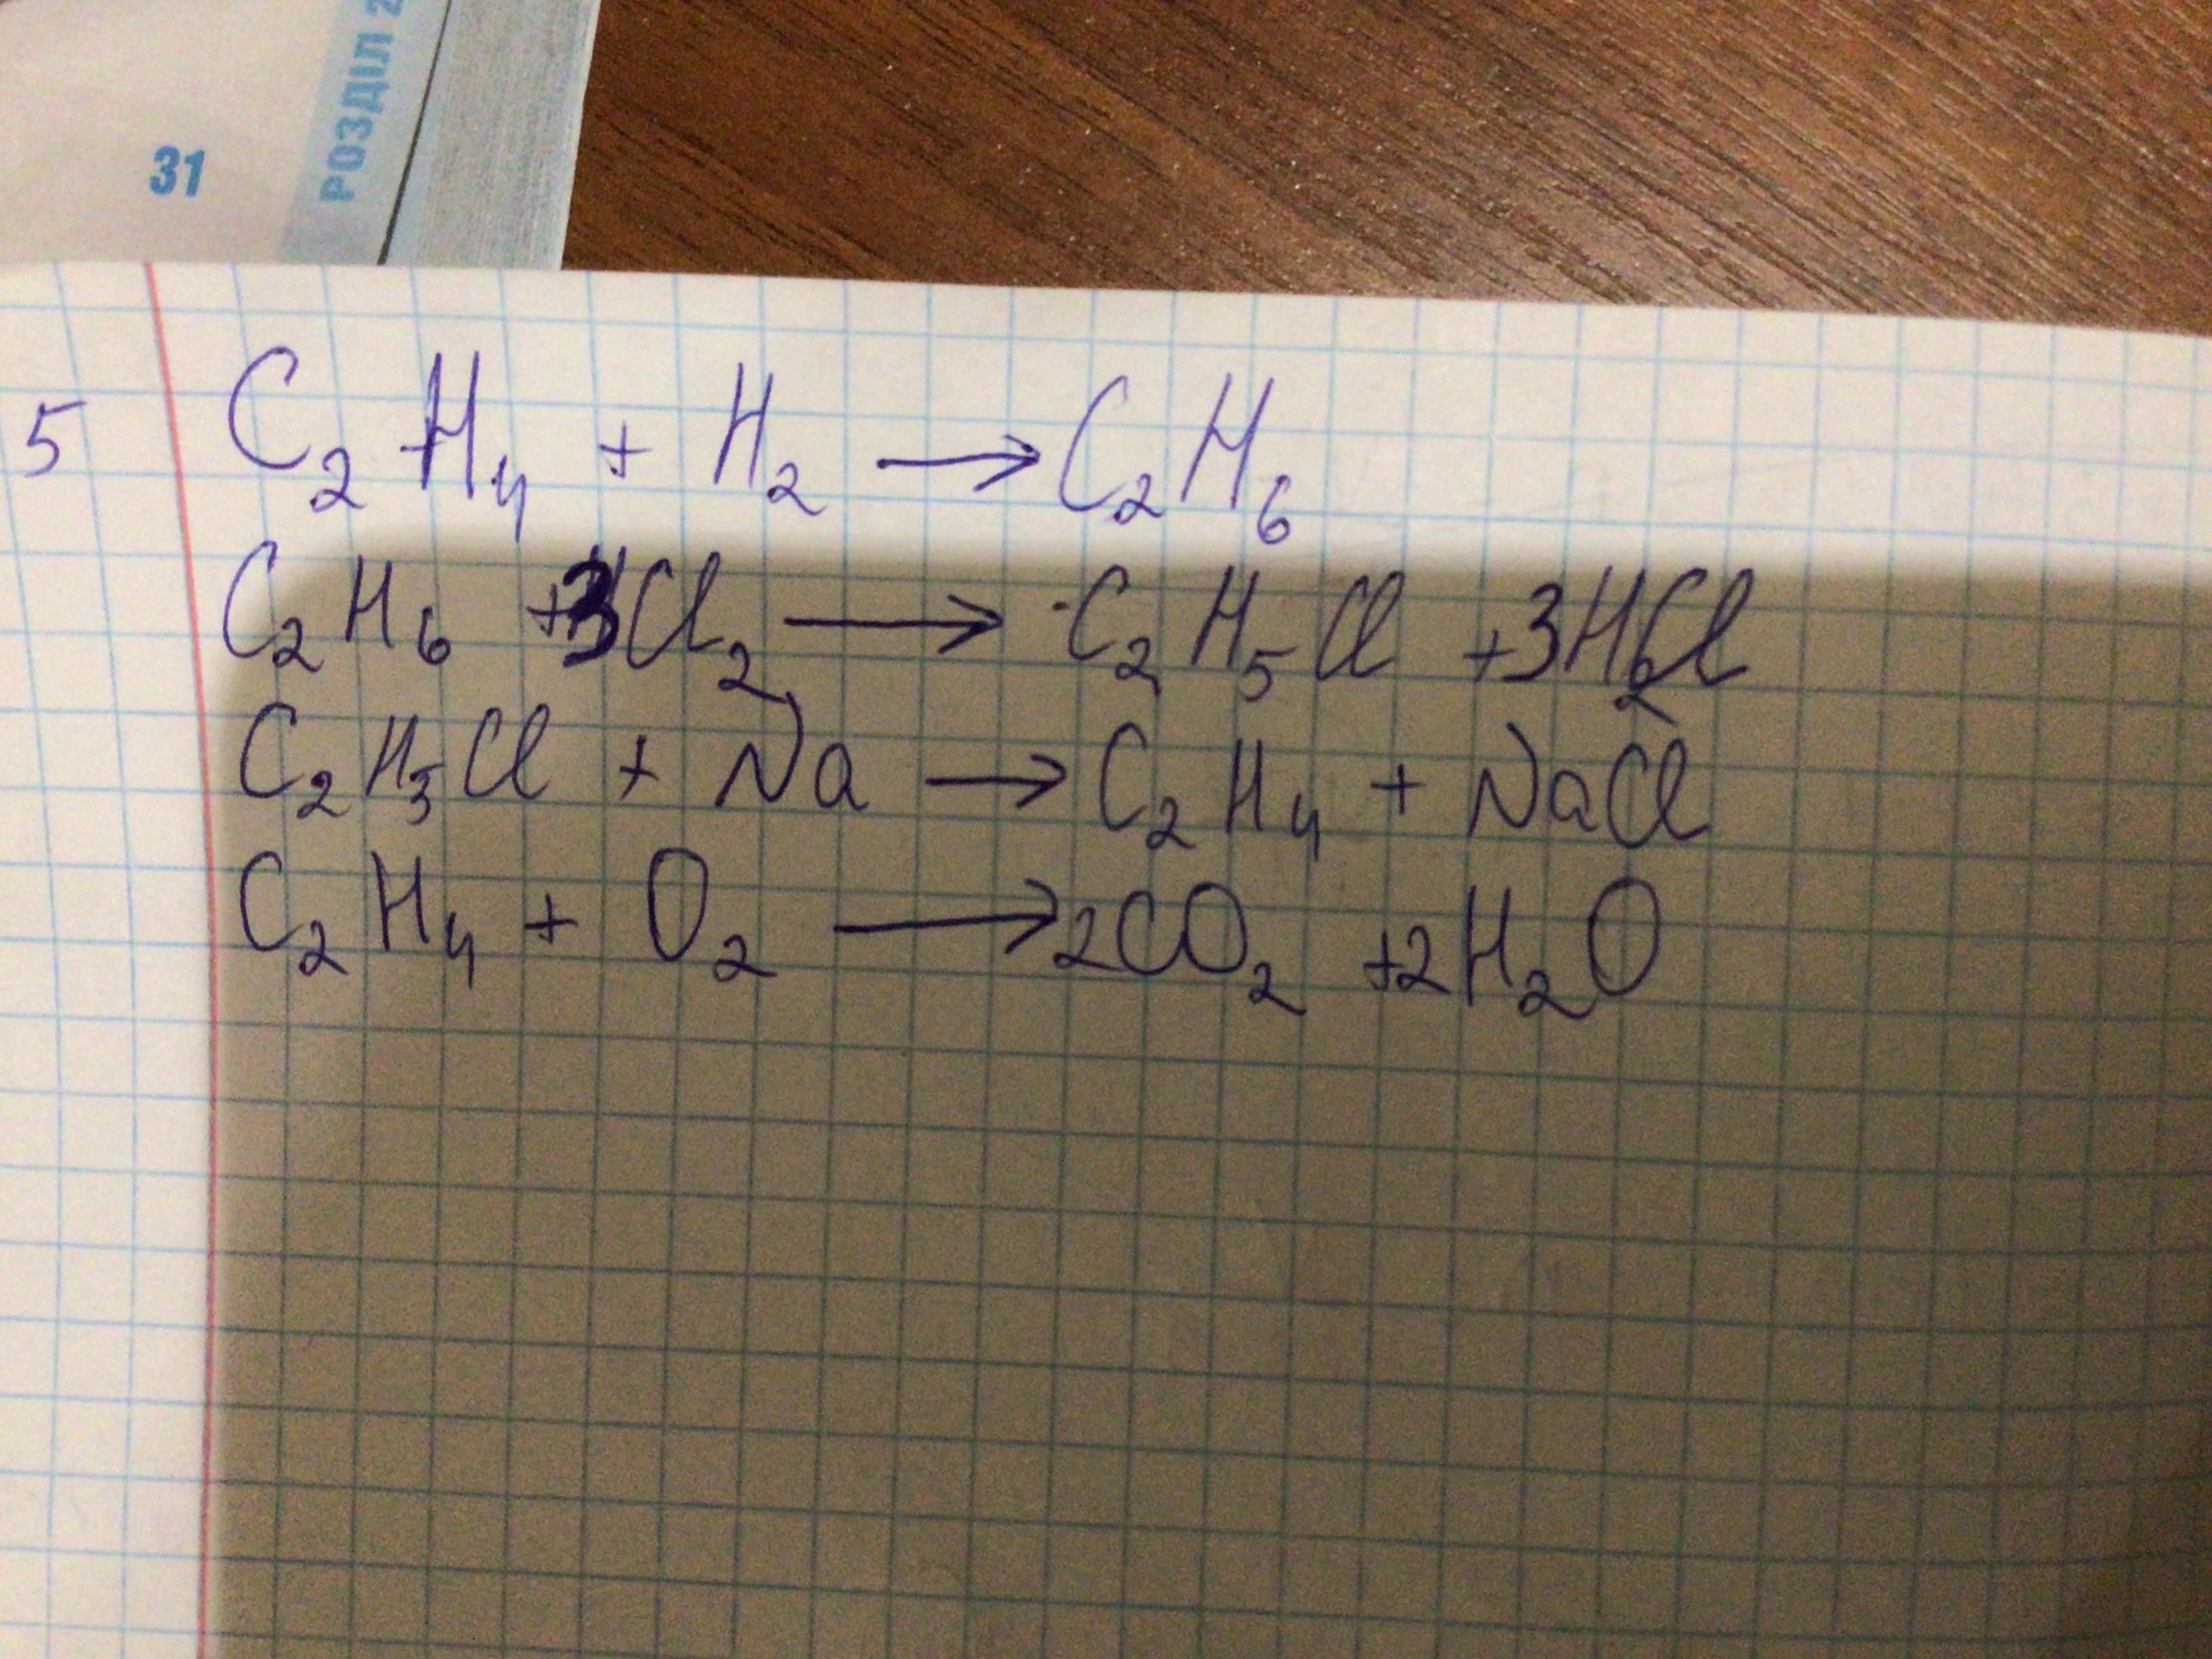 РОЗДІЛ 2
31
5 C₂H₄ + H₂ → C₂H₆
C₂H₆ + 3Cl₂ → C₂H₅Cl + 3HCl
C₂H₅Cl + Na → C₂H₄ + NaCl
C₂H₄ + O₂ → 2CO₂ + 2H₂O